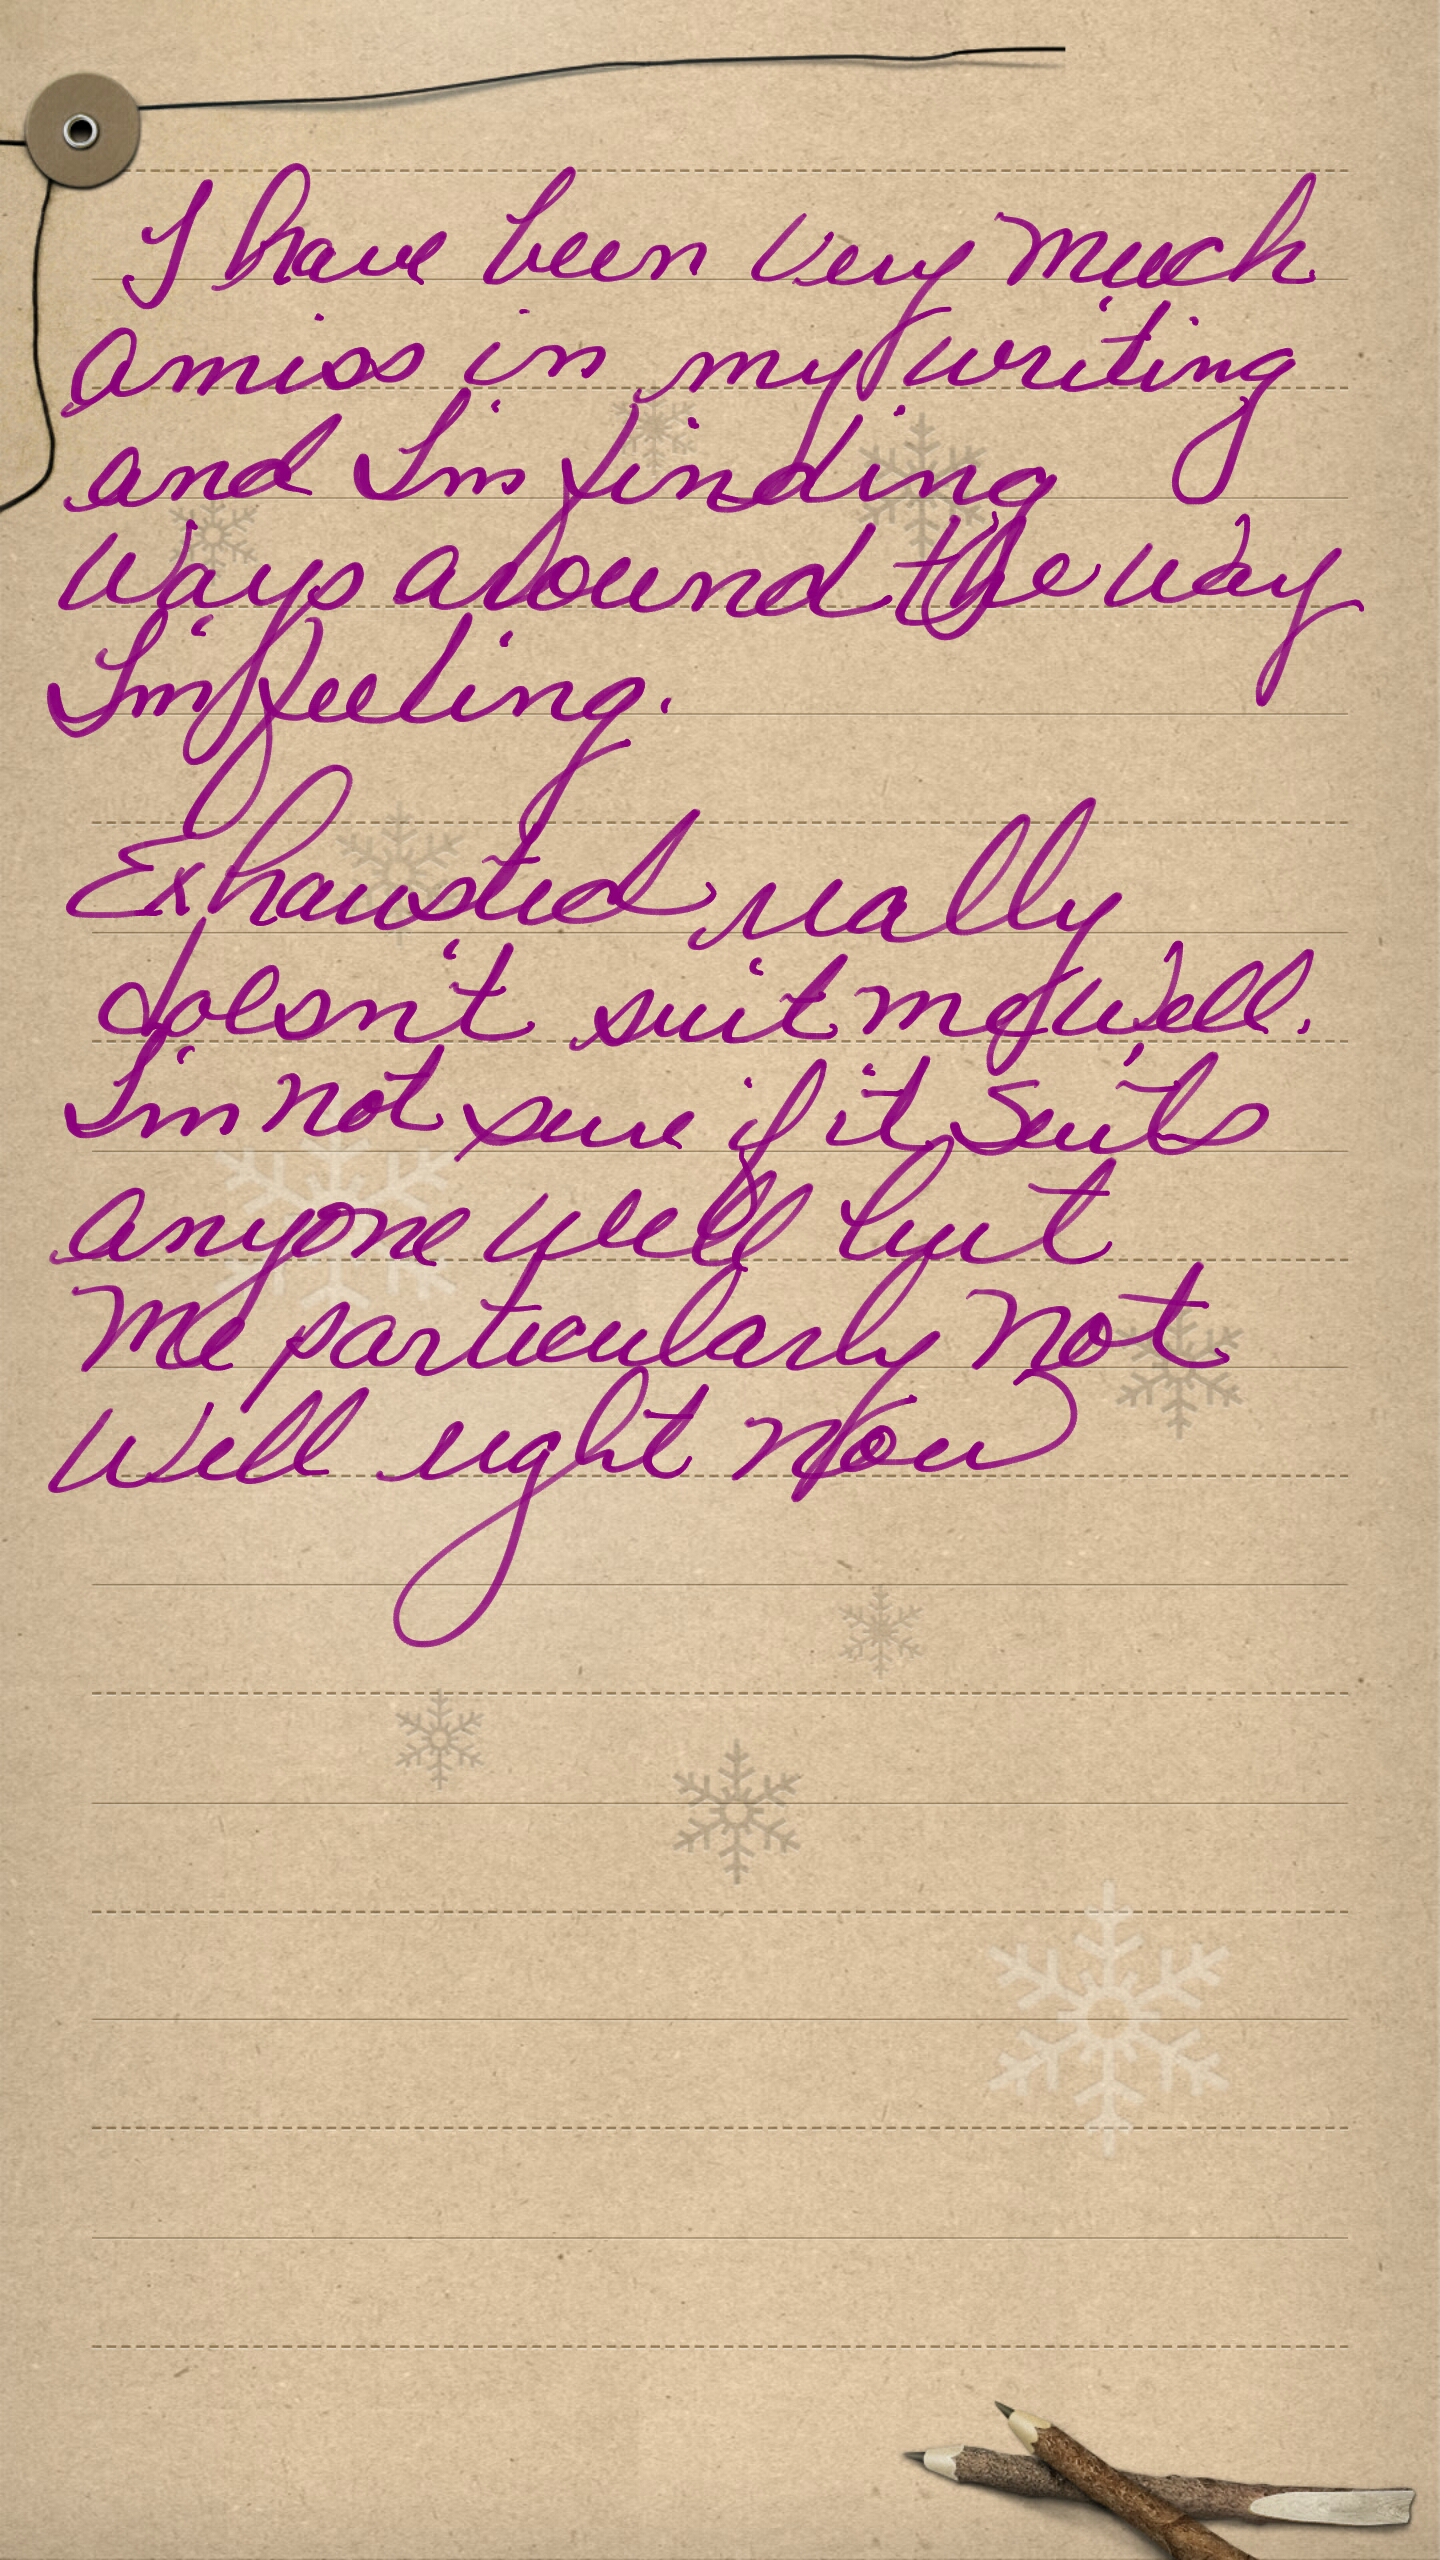 I have been very much
amiss in my writing
and I'm finding
ways around the way
I'm feeling.
Exhausted really
doesn't suit me well.
I'm not sure if it suits
anyone well but
me particularly not
well right now